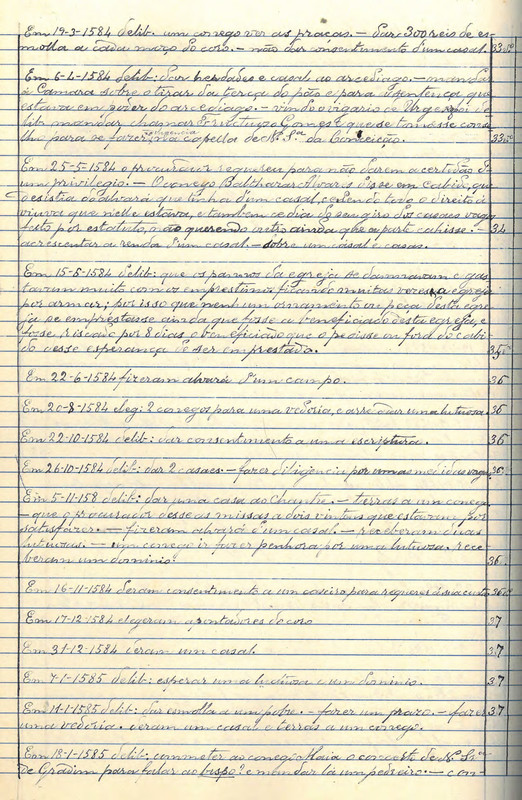 Em 19-3-1584 delib. um conego ver as praças. — Dar 300 reis de es-
molla a cada moço do coro. — não dar consentimento d'um casal. 33 vº
Em 6-4-1584 delib: dar herdades e casal ao arcediago. — mandar
á Camara sobre o tirar da terça do pão e para a sentença que
estava em poder do arcediago. — vindo o vigario de
lib: mandar chamar Gomes e que se tomasse conse-
lho para se fazer diligencia na capella de N. Sra da Conceição. 33 vº
Em 25-5-1584 o procurador requereu para não darem a certidão d'
um privilegio. — O conego Balthazar Alvares disse em Cabido que
desistia do alvará que tinha d'um casal, cedendo todo o direito á
viuva que nelle estava, e tambem cedia do seu giro dos casaes vagos
feito por estatuto, não querendo outro ainda que a part. cahisse. — 34
acrescentar a renda d'um casal. — sobre um casal e casas.
Em 15-5-1584 delib: que os pannos da egreja se damnavam e gas-
tavam muito com os emprestimos ficando muitas vezes a egreja
por armar; por isso que nenhum ornamento ou peça desta egre-
ja se emprestasse ainda que fosse a beneficiado desta egreja, e
fosse riscado por 8 dias o beneficiado que o pedisse ou fora do cabi-
do desse esperança de ser emprestado. 35 vº
Em 22-6-1584 fizeram alvará d'um campo. 36
Em 20-8-1584 eleg: 2 conegos para uma vedoria, e arrecadar uma luctuosa. 36
Em 22-10-1584 delib: dar consentimento a uma escriptura. 36
Em 26-10-1584 delib: dar 2 casaes. — fazer diligencia por uma meia vaga 36
Em 5-11-158 delib: dar una casa ao Chantre. — terras a um conego
— que o procurador desse as missas a dois vintens que estavam por
satisfazer. — fizeram alvará d'um casal. — receberam duas
luctuosas. — um conego ir fazer penhora por uma luctuosa. rece-
beram um dominio. 36
Em 16-11-1584 deram consentimento a um caseiro para requerer á sua custa 36 vº
Em 17-12-1584 elegeram apontadores do coro 37
Em 31-12-1584 deram um casal. 37
Em 7-1-1585 delib: esperar uma luctuosa e um dominio. 37
Em 11-1-1585 delib: dar esmolla a um pobre. — fazer um prazo. — fazer 37
uma vedoria. deram um casal e terras a um conego.
Em 18-1-1585 delib: commeter ao conego Maia o concerto de N. Sra
de Gradim para falar ao bispo? e mandar lá um pedreiro. — con-